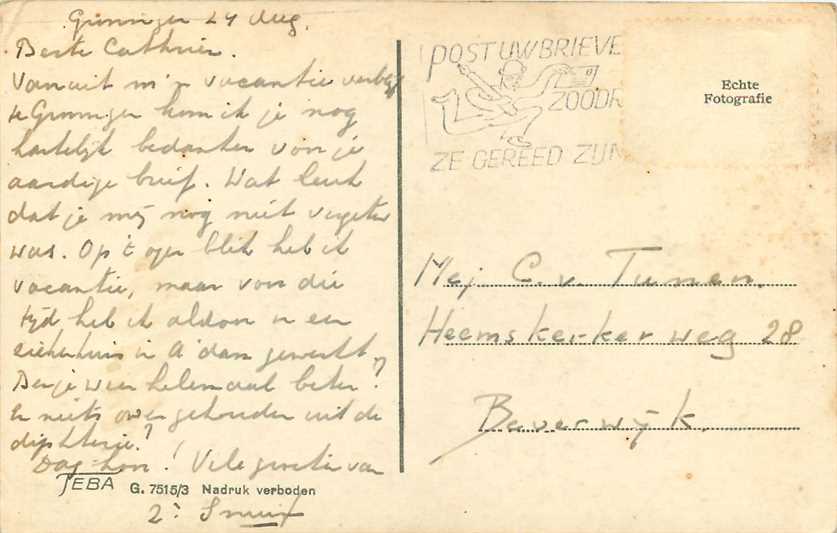 Groningen 24 Aug.
Beste Cathrien.
Vanuit m'n vacantie verblijf
te Groningen kom ik je nog
hartelijk bedanken voor je
aardige brief. Wat leuk
dat je mij nog niet vergeten
was. Op 't ogenblik heb ik
vacantie, maar voor die
tijd heb ik aldoor in een
ziekenhuis in A'dam gewerkt.
Ben je weer helemaal beter?
En niets over gehouden uit de
diphterie?
Dag hoor! Vele groeten van
TEBA G. 7515/3 Nadruk verboden
Zr.
POST UW BRIEVE
ZOODR
ZE GEREED ZIJN
Echte
Fotografie
Mej C. v. Tunen.
Heemskerkerweg 28
Beverwijk.